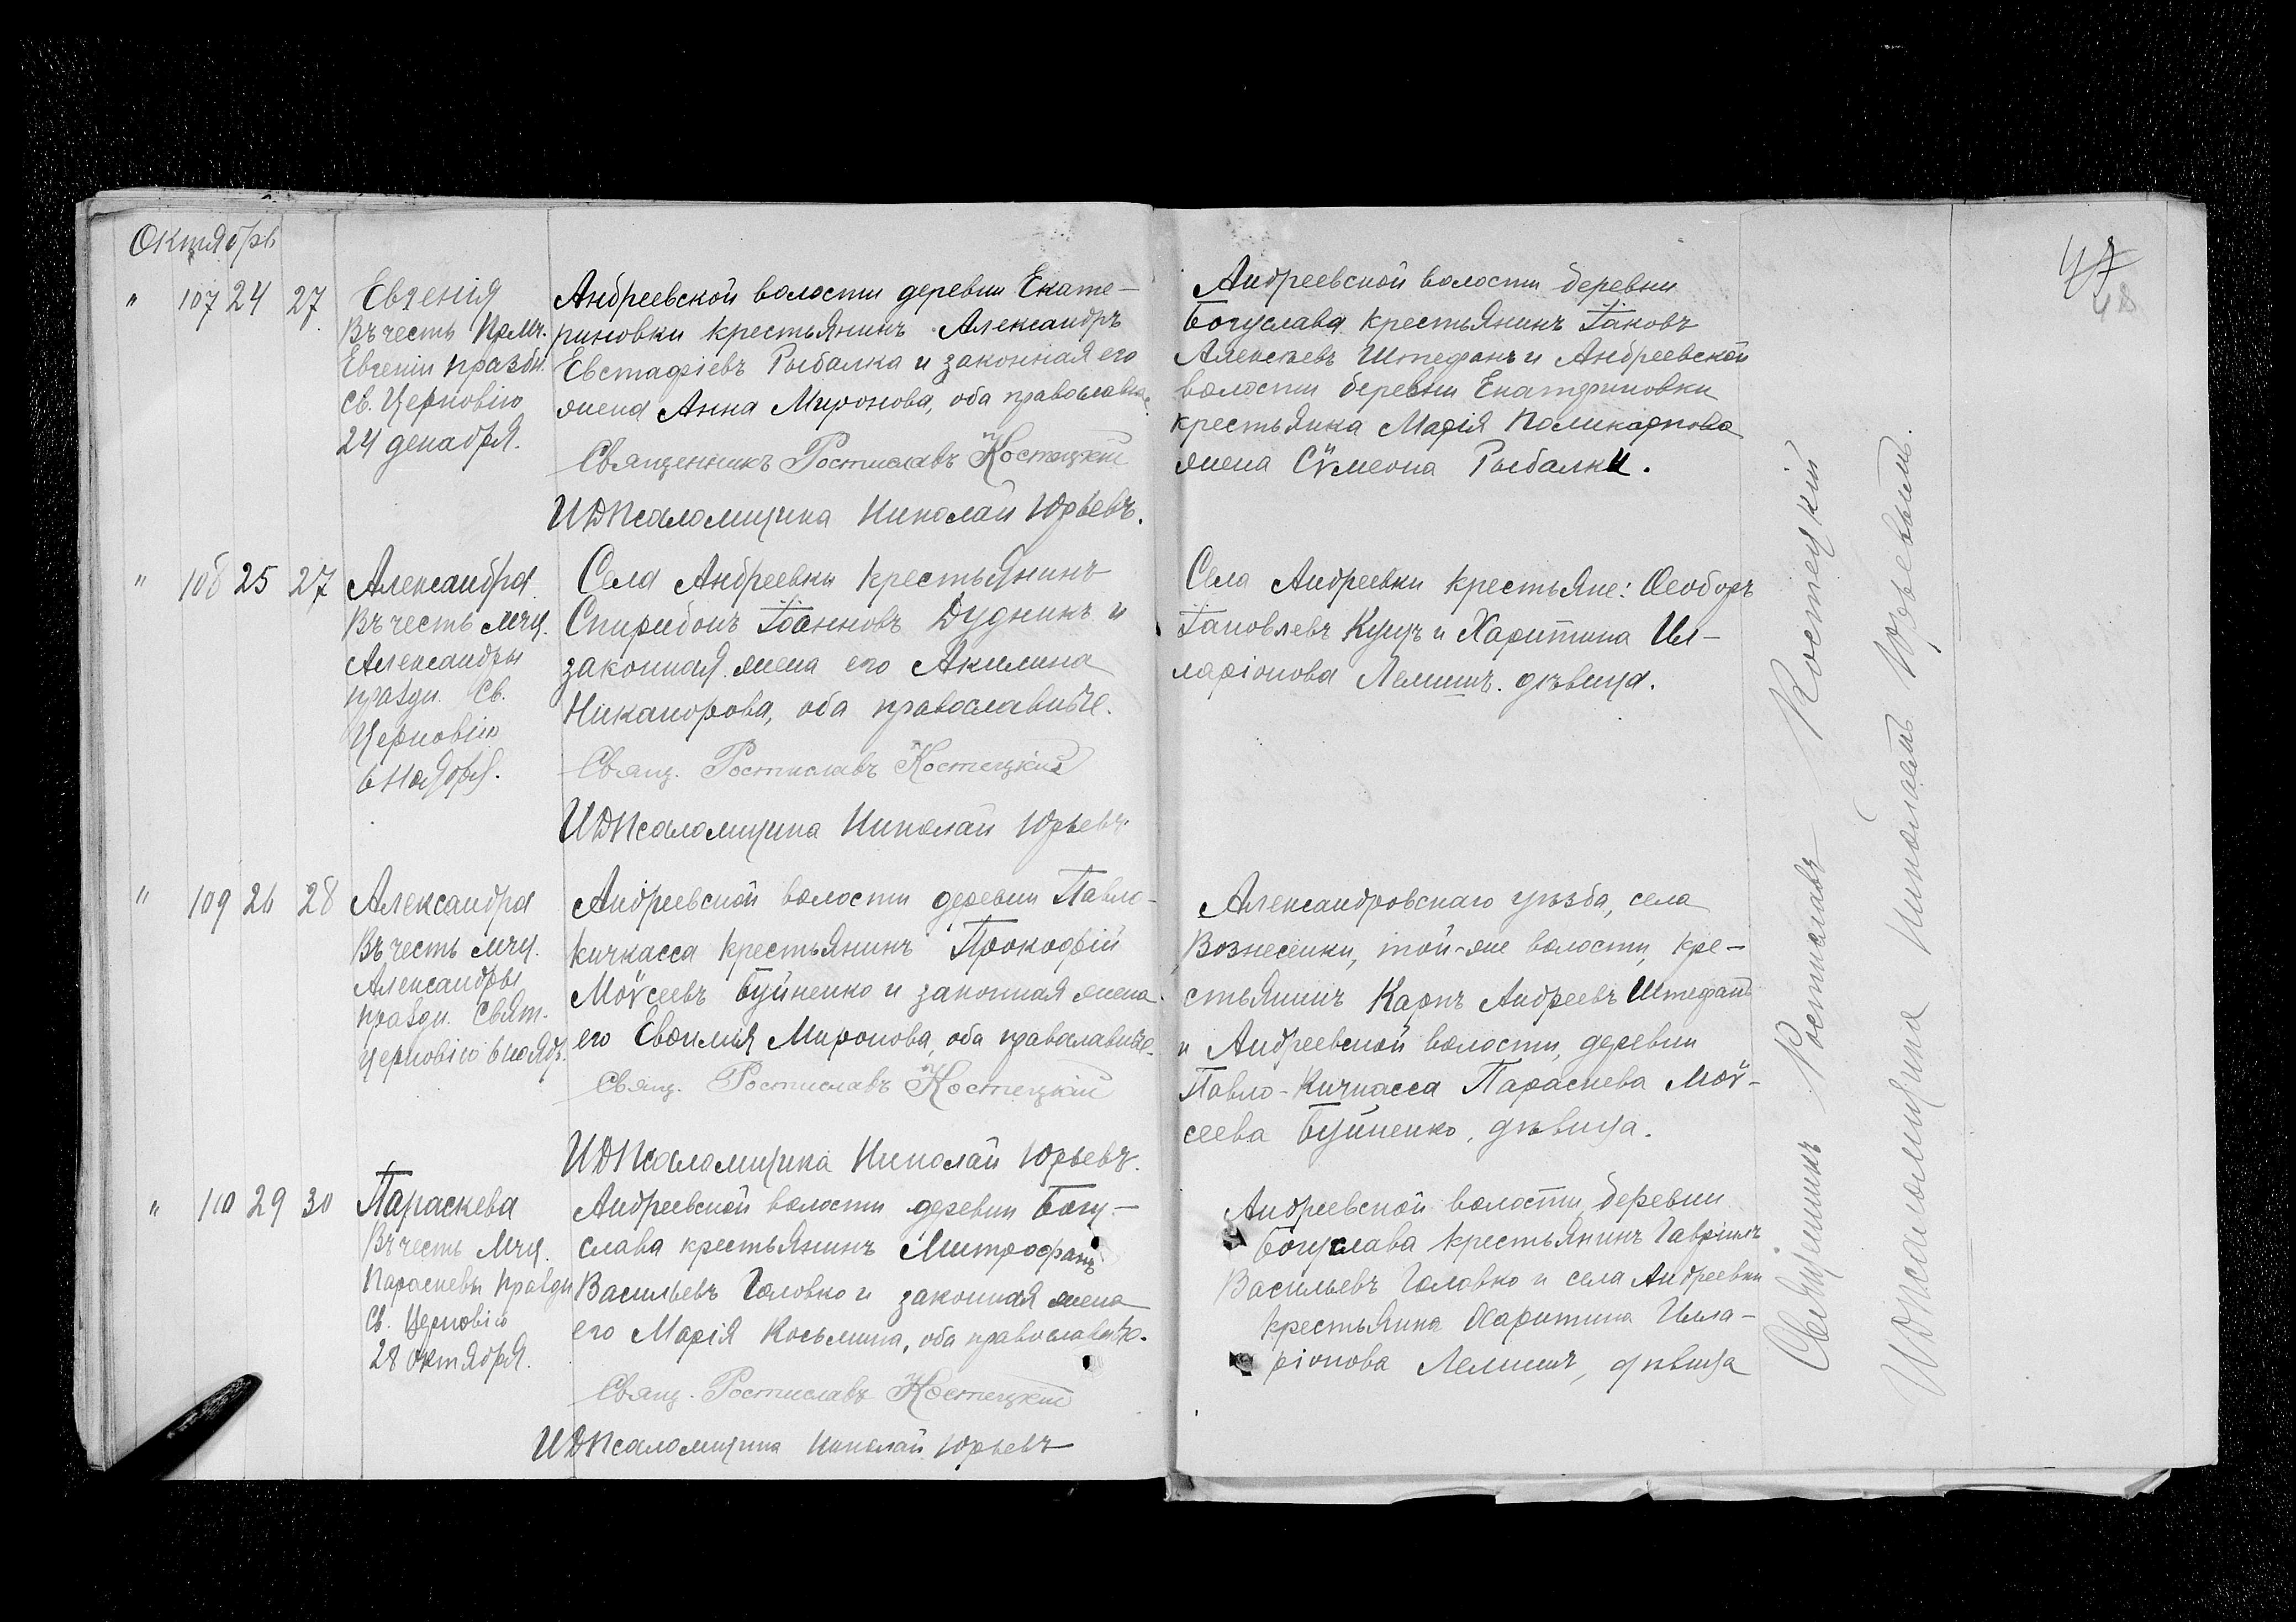 Октябрь
47
48
" 107 24 27 Евгенія
Въ честь Прмч.
Евгеніи праздн.
Св. Церковію
24 декабря.
Андреевской волости деревни Екате-
риновки крестьянинъ Александръ
Евстафіевъ Рыбалка и законная его
жена Анна Миронова, оба православн.
Священникъ Ростиславъ Костецкій
И Д Псаломщика Николай Юрьевъ.
Андреевской волости деревни
Богуслава крестьянинъ Іаковъ
Алексѣевъ Штефанъ и Андреевской
волости деревни Екатериновки
крестьянка Марія Поликарпова
жена Сѵмеона Рыбалки.
" 108 25 27 Александра
Въ честь мчц.
Александры
праздн. Св.
Церковію
6 ноября.
Села Андреевки крестьянинъ
Спиридонъ Іоанновъ Дудникъ и
законная жена его Акилина
Никанорова, оба православные.
Свящ. Ростиславъ Костецкій
И Д Псаломщика Николай Юрьевъ
Села Андреевки крестьяне: Ѳеодоръ
Іаковлевъ Куцъ и Харитина Ил-
ларіонова Лемишъ. дѣвица.
" 109 26 28 Александра
Въ честь мчц.
Александры
праздн. Свят.
Церковію 6 нояб.
Андреевской волости деревни Павло-
кичкасса крестьянинъ Прокофій
Моѵсеевъ Буйненко и законная жена
его Евѳимія Миронова, оба православные.
Свящ. Ростиславъ Костецкій
И Д Псаломщика Николай Юрьевъ.
Александровскаго уѣзда, села
Вознесенки, той-же волости, кре-
стьянинъ Карпъ Андреевъ Штефанъ
и Андреевской волости, деревни
Павло-Кичкасса Параскева Моѵ-
сеева Буйненко, дѣвица.
" 110 29 30 Параскева
Въ честь Мчц.
Параскевы праздн
Св. Церковію
28 октября.
Андреевской волости деревни Богу-
слава крестьянинъ Митрофанъ
Васильевъ Головко и законная жена
его Марія Косьмина, оба православные.
Свящ. Ростиславъ Костецкій
И Д Псаломщика Николай Юрьевъ
Андреевской волости, деревни
Богуслава крестьянинъ Гавріилъ
Васильевъ Головко и села Андреевки
крестьянка Харитина Илла-
ріонова Лемишъ, дѣвица
Священникъ Ростиславъ Костецкій
И Д Псаломщика Николаемъ Юрьевымъ.